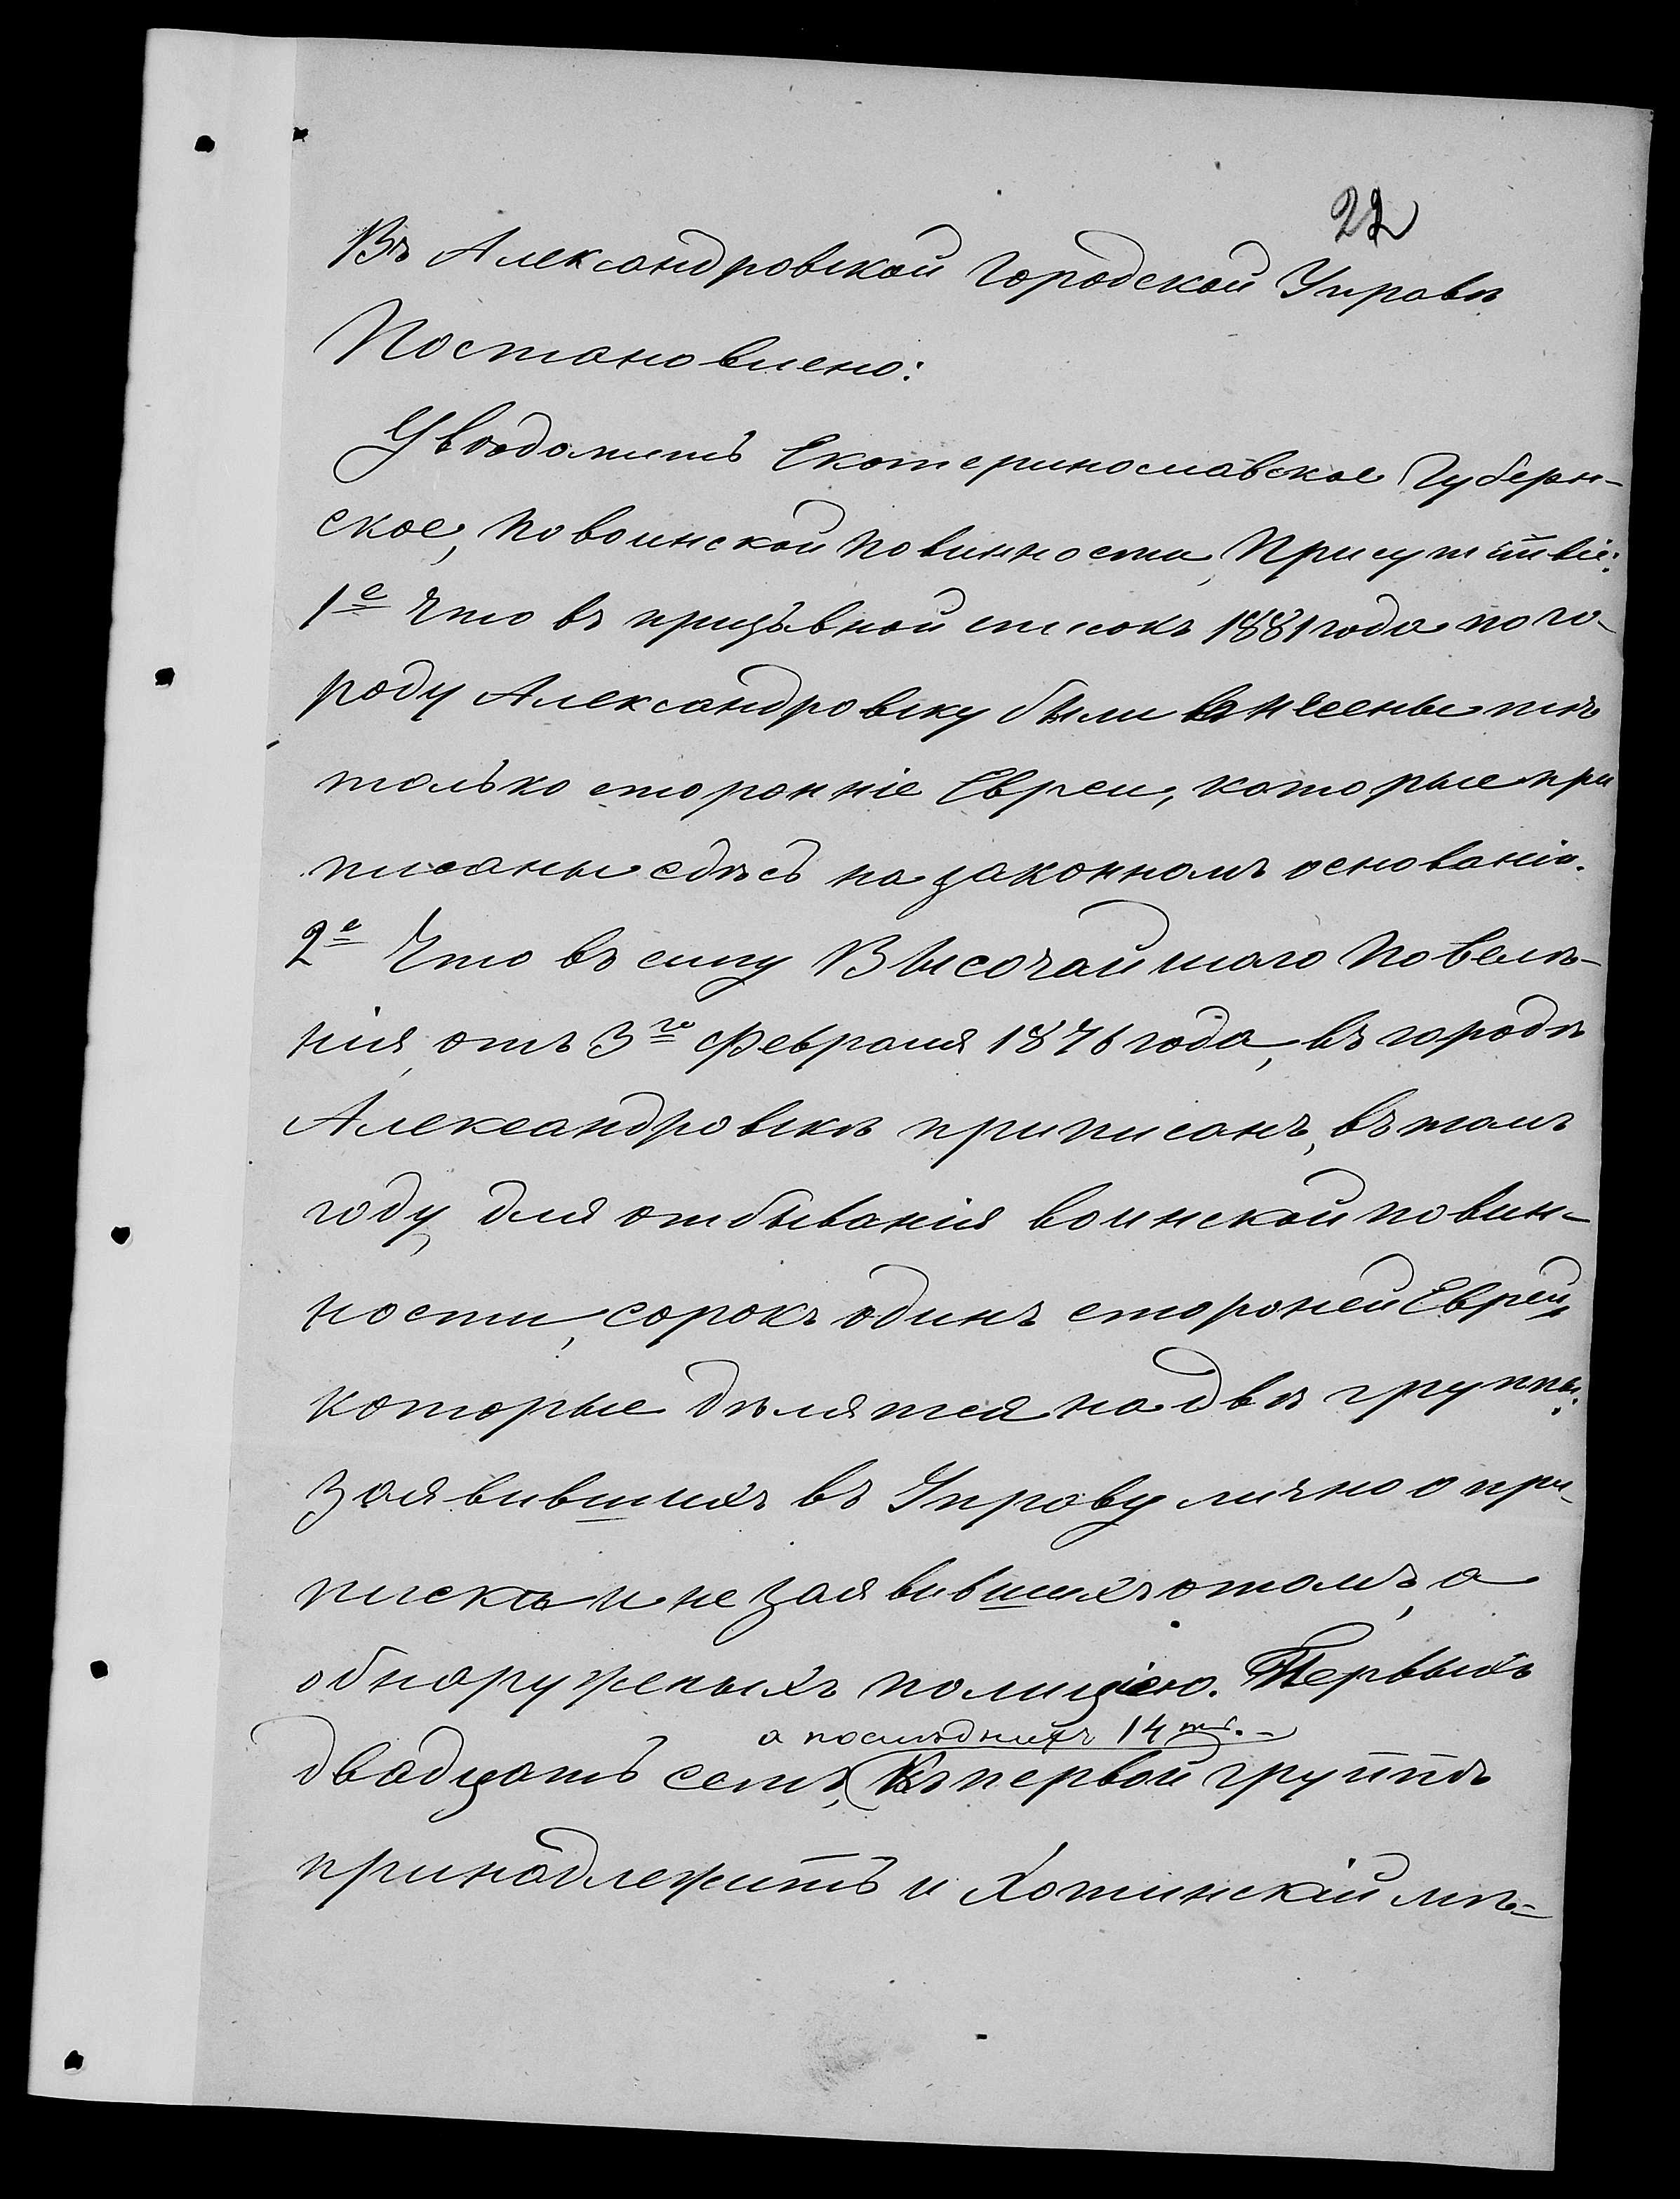 22
Въ Александровской Городской Управѣ
Постановлено:
Увѣдомить Екатеринославское Губерн-
ское, по воинской повинности, Присутствіе:
1е Что въ призывной списокъ 1881 года по го-
роду Александровску были внесены тѣ
только сторонніе Евреи, которые при
писаны сдѣсь на законномъ основаніи.
2е Что въ силу Высочайшаго повелѣ-
нія, отъ 3го Февраля 1876 года, въ городѣ
Александровскѣ приписанъ, въ томъ
году, для отбыванія воинской повин-
ности, сорокъ одинъстороней Еврей,
которые дѣлятся на двѣ группы:
заявившихъ въ Управу лично о при-
пискѣ и не заявившихъ о томъ, а
обнаруженыхъ полиціею. Первыхъ
а послѣднихъ 14ть.-
двадцать семь, Къ первой группѣ
принадлежитъ и Хотинскій мѣ-